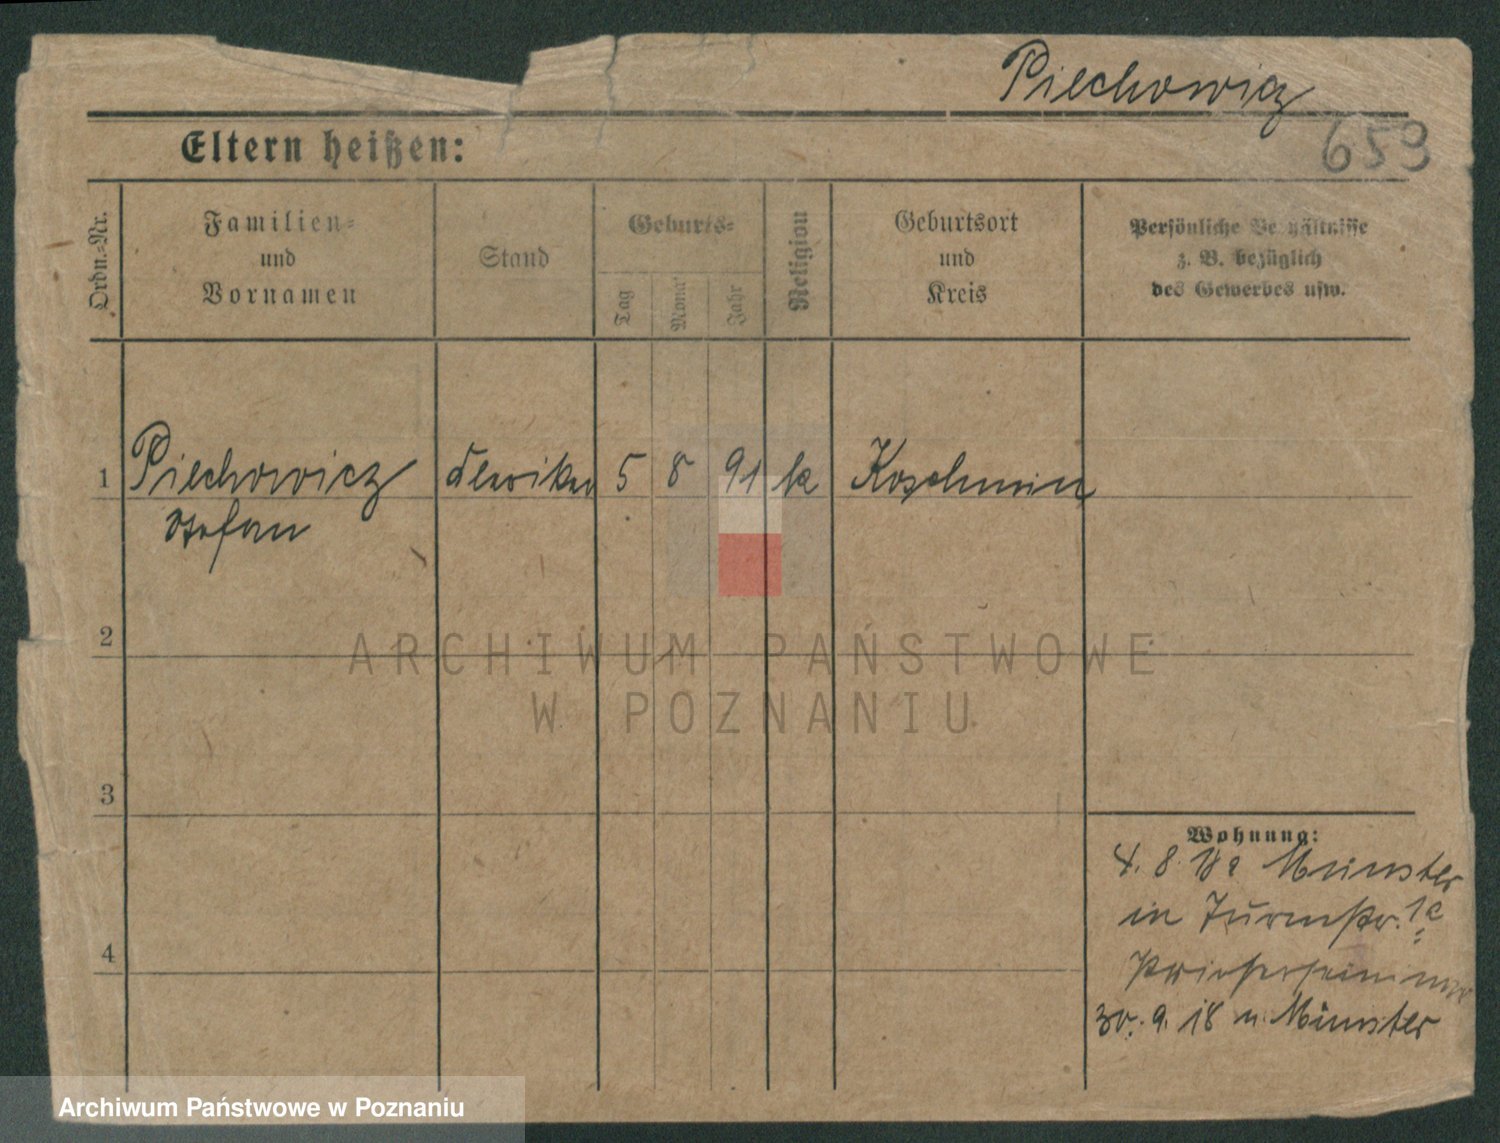 Piechowicz
659
Eltern heißen:
Ordn.-Nr.
Familien-
und
Vornamen
Stand
Geburts-
Tag
Monat
Jahr
Religion
Geburtsort
und
Kreis
Persönliche Verhältnisse
z. B. bezüglich
des Gewerbes usw.
1 Piechowicz Kleriker 5 8 91 k Koschmin
Stefan
2
3
4
Wohnung:
4. 8. 18 Münster
in Turmstr. 1
Priesterseminar
30. 9. 18 n. Münster
ARCHIWUM PAŃSTWOWE
W POZNANIU
Archiwum Państwowe w Poznaniu